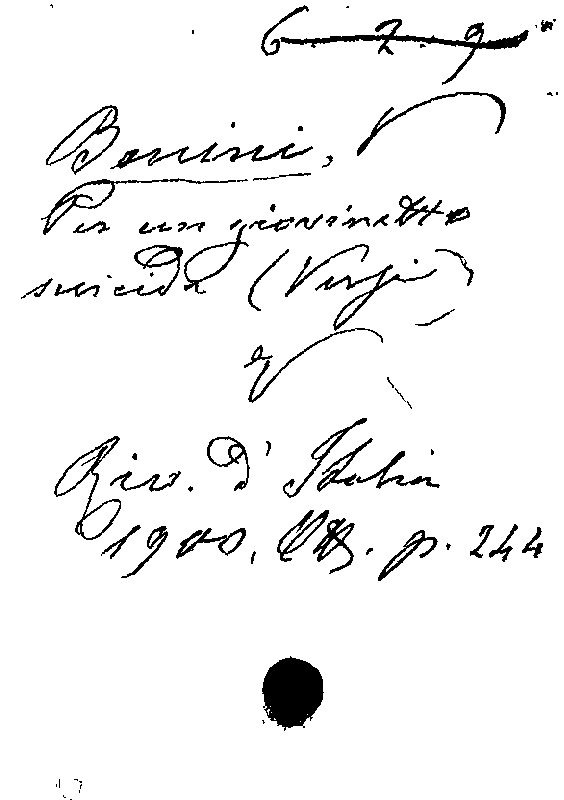 6. 2. 9
Bonini,
Per un giovinetto
suicida (Versi)
Riv. d'Italia
1900, p. 244